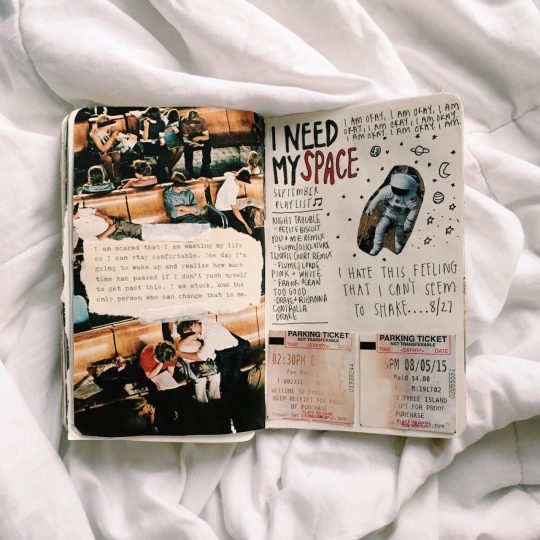 I am scared that I am wasting my life
so I can stay comfortable. One day I'm
going to wake up and realize how much
time has passed if I don't push myself
to get past this. I am stuck, and the
only person who can change that is me.
I NEED
MY SPACE
SEPTEMBER
PLAYLIST
NIGHT TROUBLE
- PETITE BISCUIT
YOU + ME REMIX
- FLUME/DISCLOSURE
TENNIS COURT REMIX
- FLUME/LORDE
PINK + WHITE
- FRANK OCEAN
TOO GOOD
- DRAKE + RIHANNA
CONTROLLA
DRAKE
I AM OKAY, I AM OKAY, I AM
OKAY, I AM OKAY, I AM OKAY,
I AM OKAY, I AM OKAY, I AM.
I HATE THIS FEELING
THAT I CAN'T SEEM
TO SHAKE....8/27
PARKING TICKET
NOT TRANSFERABLE
TIME EXPIRY DATE
02:30PM
Fee Paid
WELCOME TO TYBEE
KEEP RECEIPT FOR PROOF
OF PURCHASE
PARKING TICKET
NOT TRANSFERABLE
TIME EXPIRY DATE
5PM 08/05/15
Paid $4.00
M:19LT02
TO TYBEE ISLAND
IPT FOR PROOF
PURCHASE